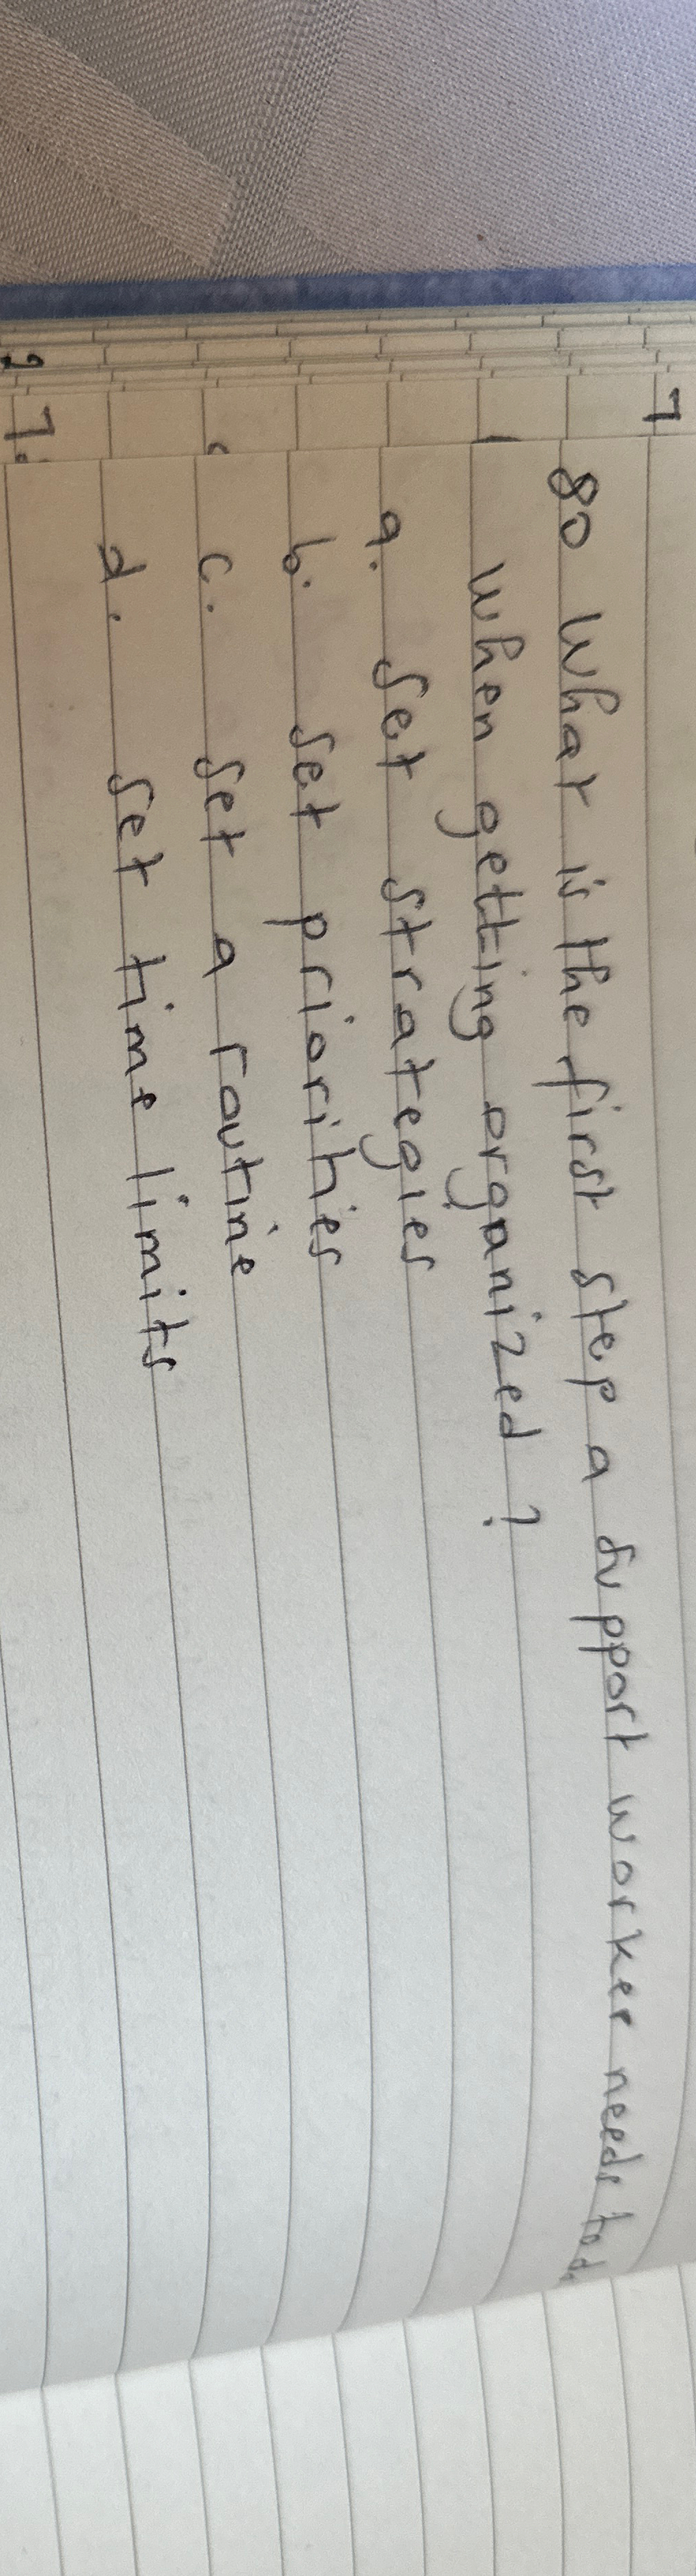 80 What is the first step a support worker needs to do
when getting organized?
a. set strategies
b. set priorities
c. set a routine
d. set time limits
7.